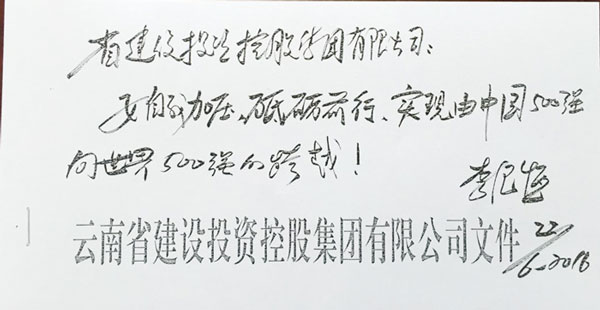 省建设投资控股集团有限公司：
要自我加压、砥砺前行、实现由中国500强
向世界500强的跨越！
李纪恒
云南省建设投资控股集团有限公司文件
22/6-2016